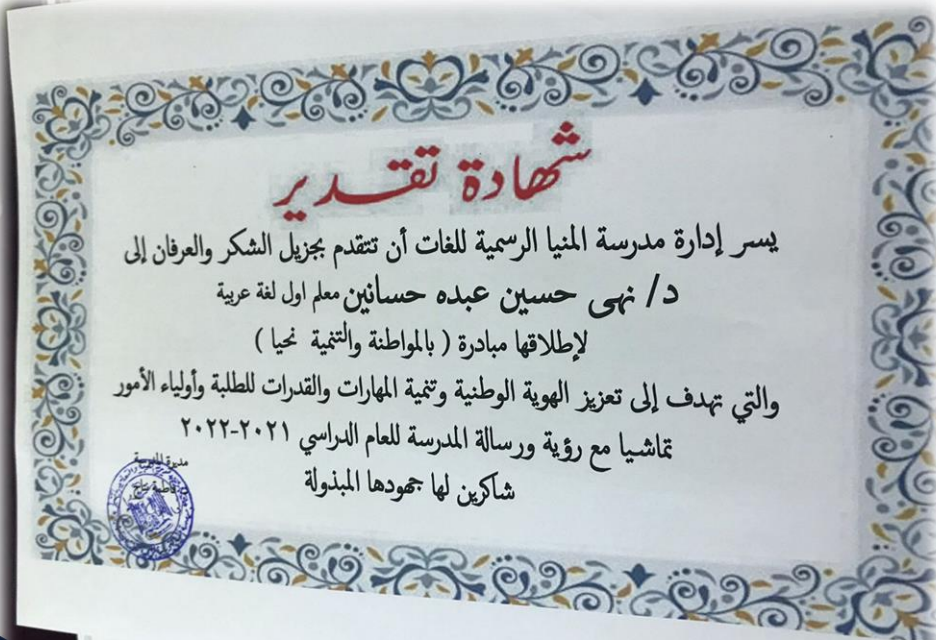 شهادة تقدير
يسر إدارة مدرسة المنيا الرسمية للغات أن تتقدم بجزيل الشكر والعرفان إلى
د/ نهى حسين عبده حسانين معلم اول لغة عربية
لإطلاقها مبادرة ( بالمواطنة والتنمية نحيا )
والتي تهدف إلى تعزيز الهوية الوطنية وتنمية المهارات والقدرات للطلبة وأولياء الأمور
تماشيا مع رؤية ورسالة المدرسة للعام الدراسي ٢٠٢١-٢٠٢٢
مديرة المدرسة
شاكرين لها جهودها المبذولة